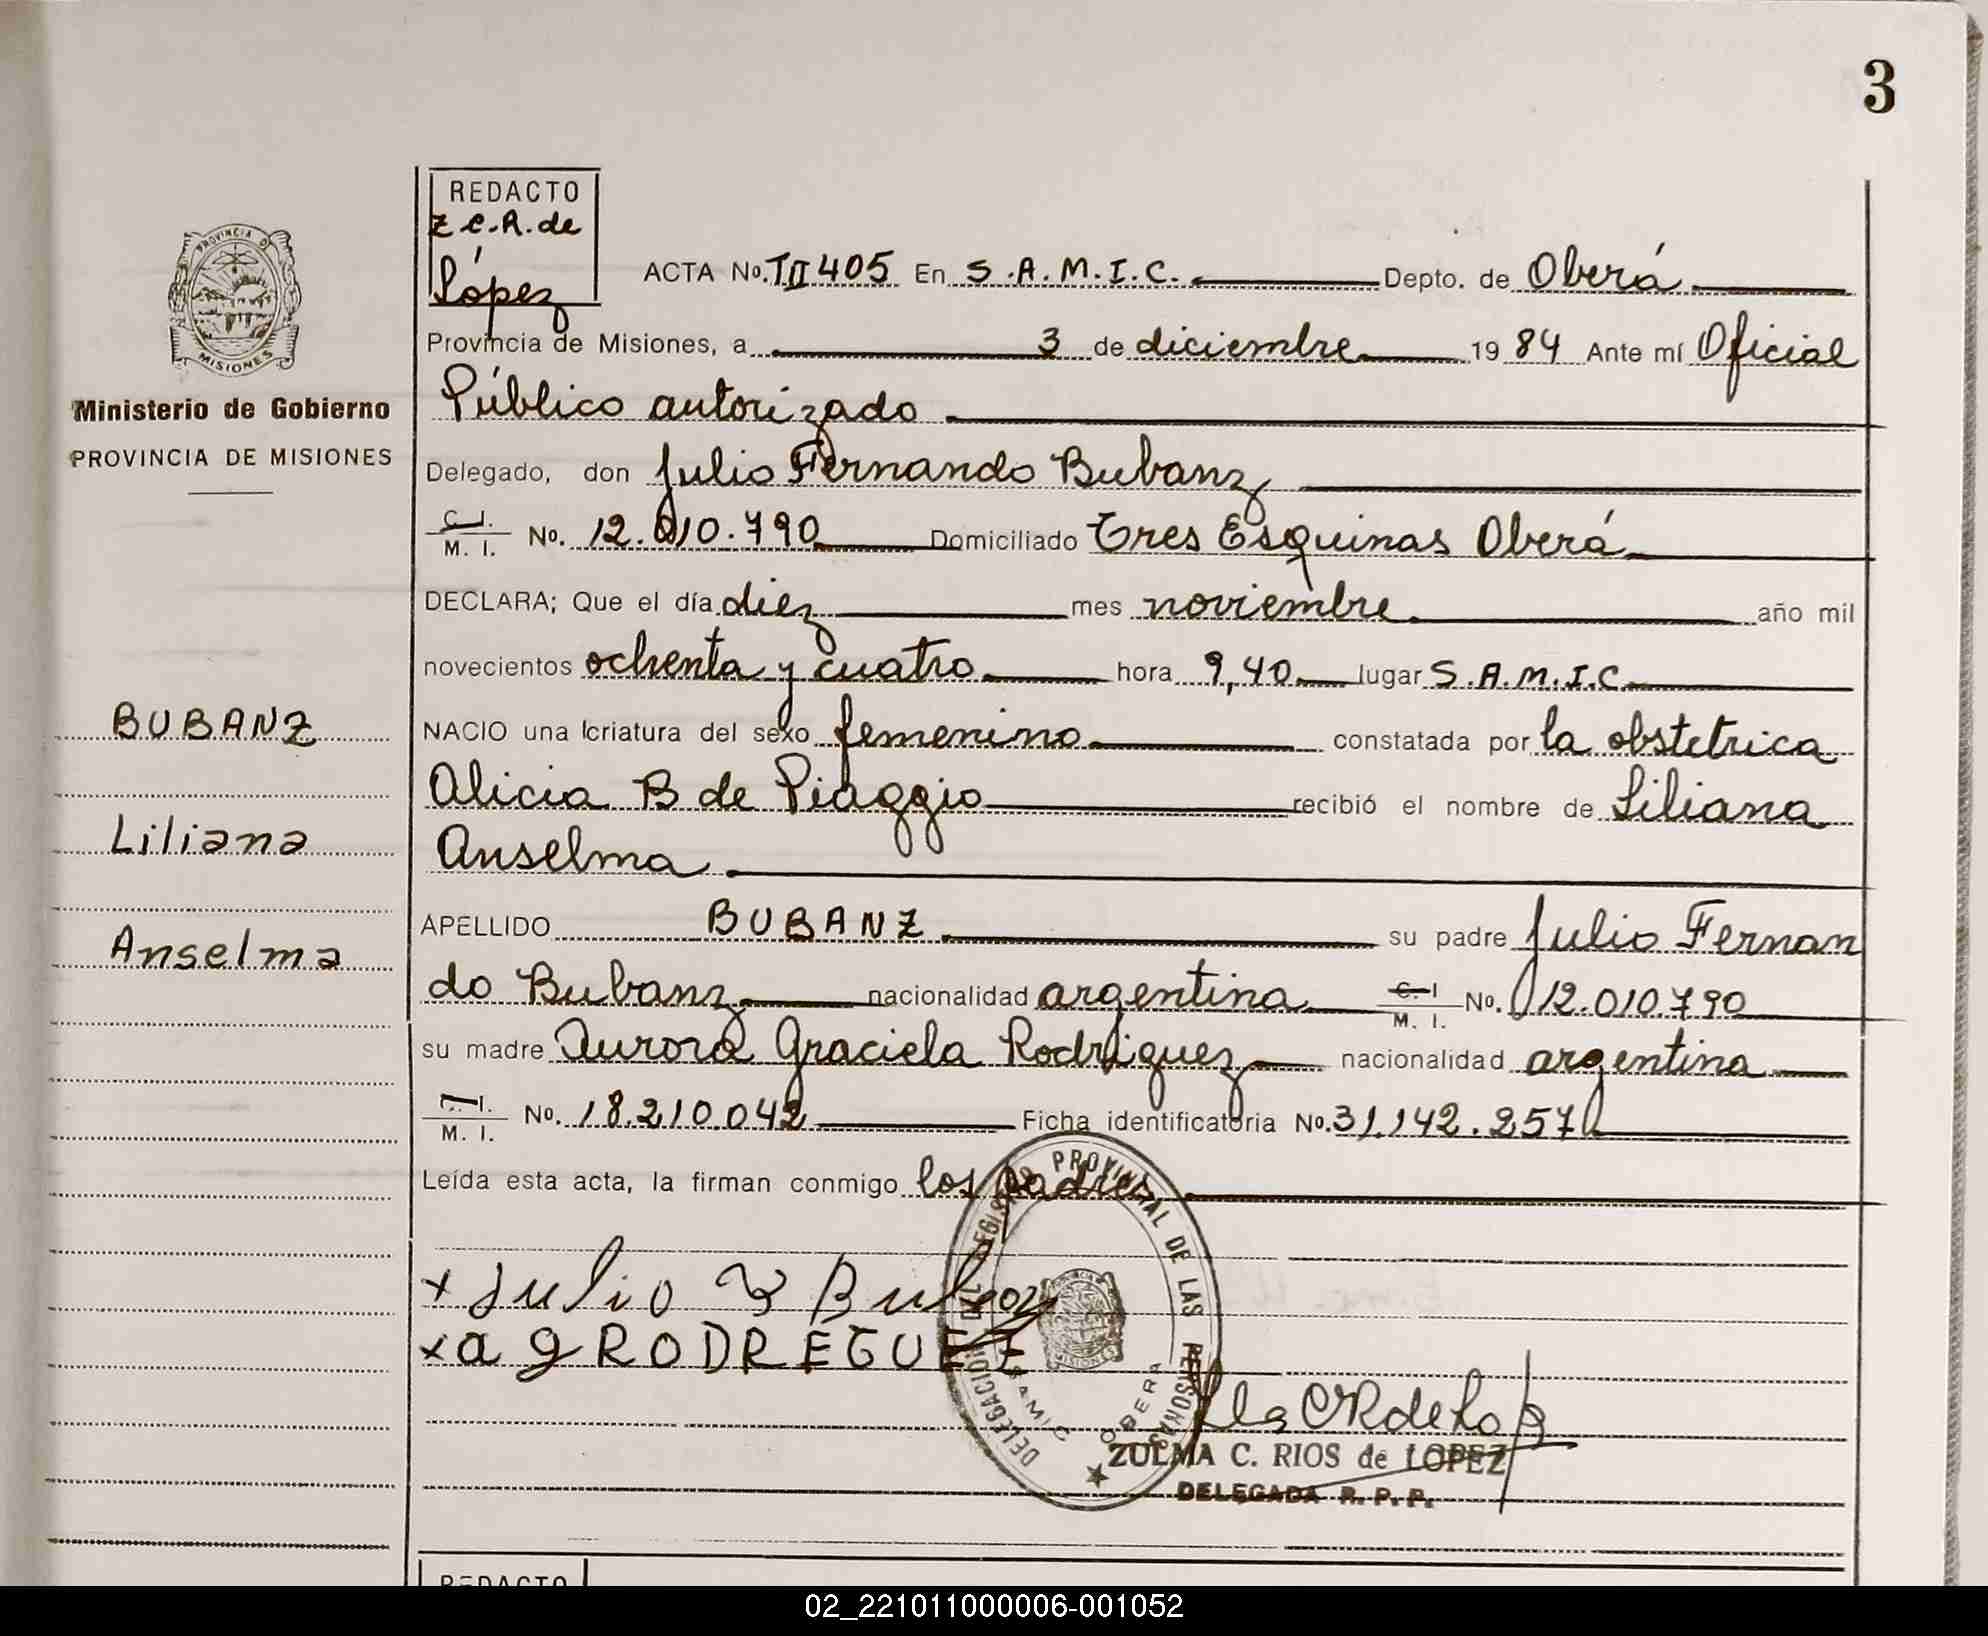 3
REDACTO
Z C.R. de
López
PROVINCIA D
MISIONES
Ministerio de Gobierno
PROVINCIA DE MISIONES
ACTA No. TII 405 En S.A.M.I.C. Depto. de Oberá
Provincia de Misiones, a 3 de diciembre 1984 Ante mí Oficial
Público autorizado
Delegado, don Julio Fernando Bubanz
C.I. M. I. No. 12.010.790 Domiciliado Tres Esquinas Oberá
DECLARA; Que el día diez mes noviembre año mil
novecientos ochenta y cuatro hora 9,40 lugar S.A.M.I.C.
BUBANZ
NACIO una criatura del sexo femenino constatada por la obstetrica
Alicia B de Piaggio recibió el nombre de Liliana
Liliana
Anselma
APELLIDO BUBANZ su padre Julio Fernan
Anselma
do Bubanz nacionalidad argentina C.I M. I. No. 12.010.790
su madre Aurora Graciela Rodriguez nacionalidad argentina
C.I. M. I. No. 18.210.042 Ficha identificatoria No. 31.142.257
Leída esta acta, la firman conmigo los padres
x Julio F Bubanz
x a g RODRÉGUEZ
DELEGACION DEL REGISTRO PROVINCIAL DE LAS PERSONAS
MISIONES
SAMIC OBERA
ZULMA C. RIOS de LOPEZ
DELEGADA R. P. P.
REDACTO
02_221011000006-001052